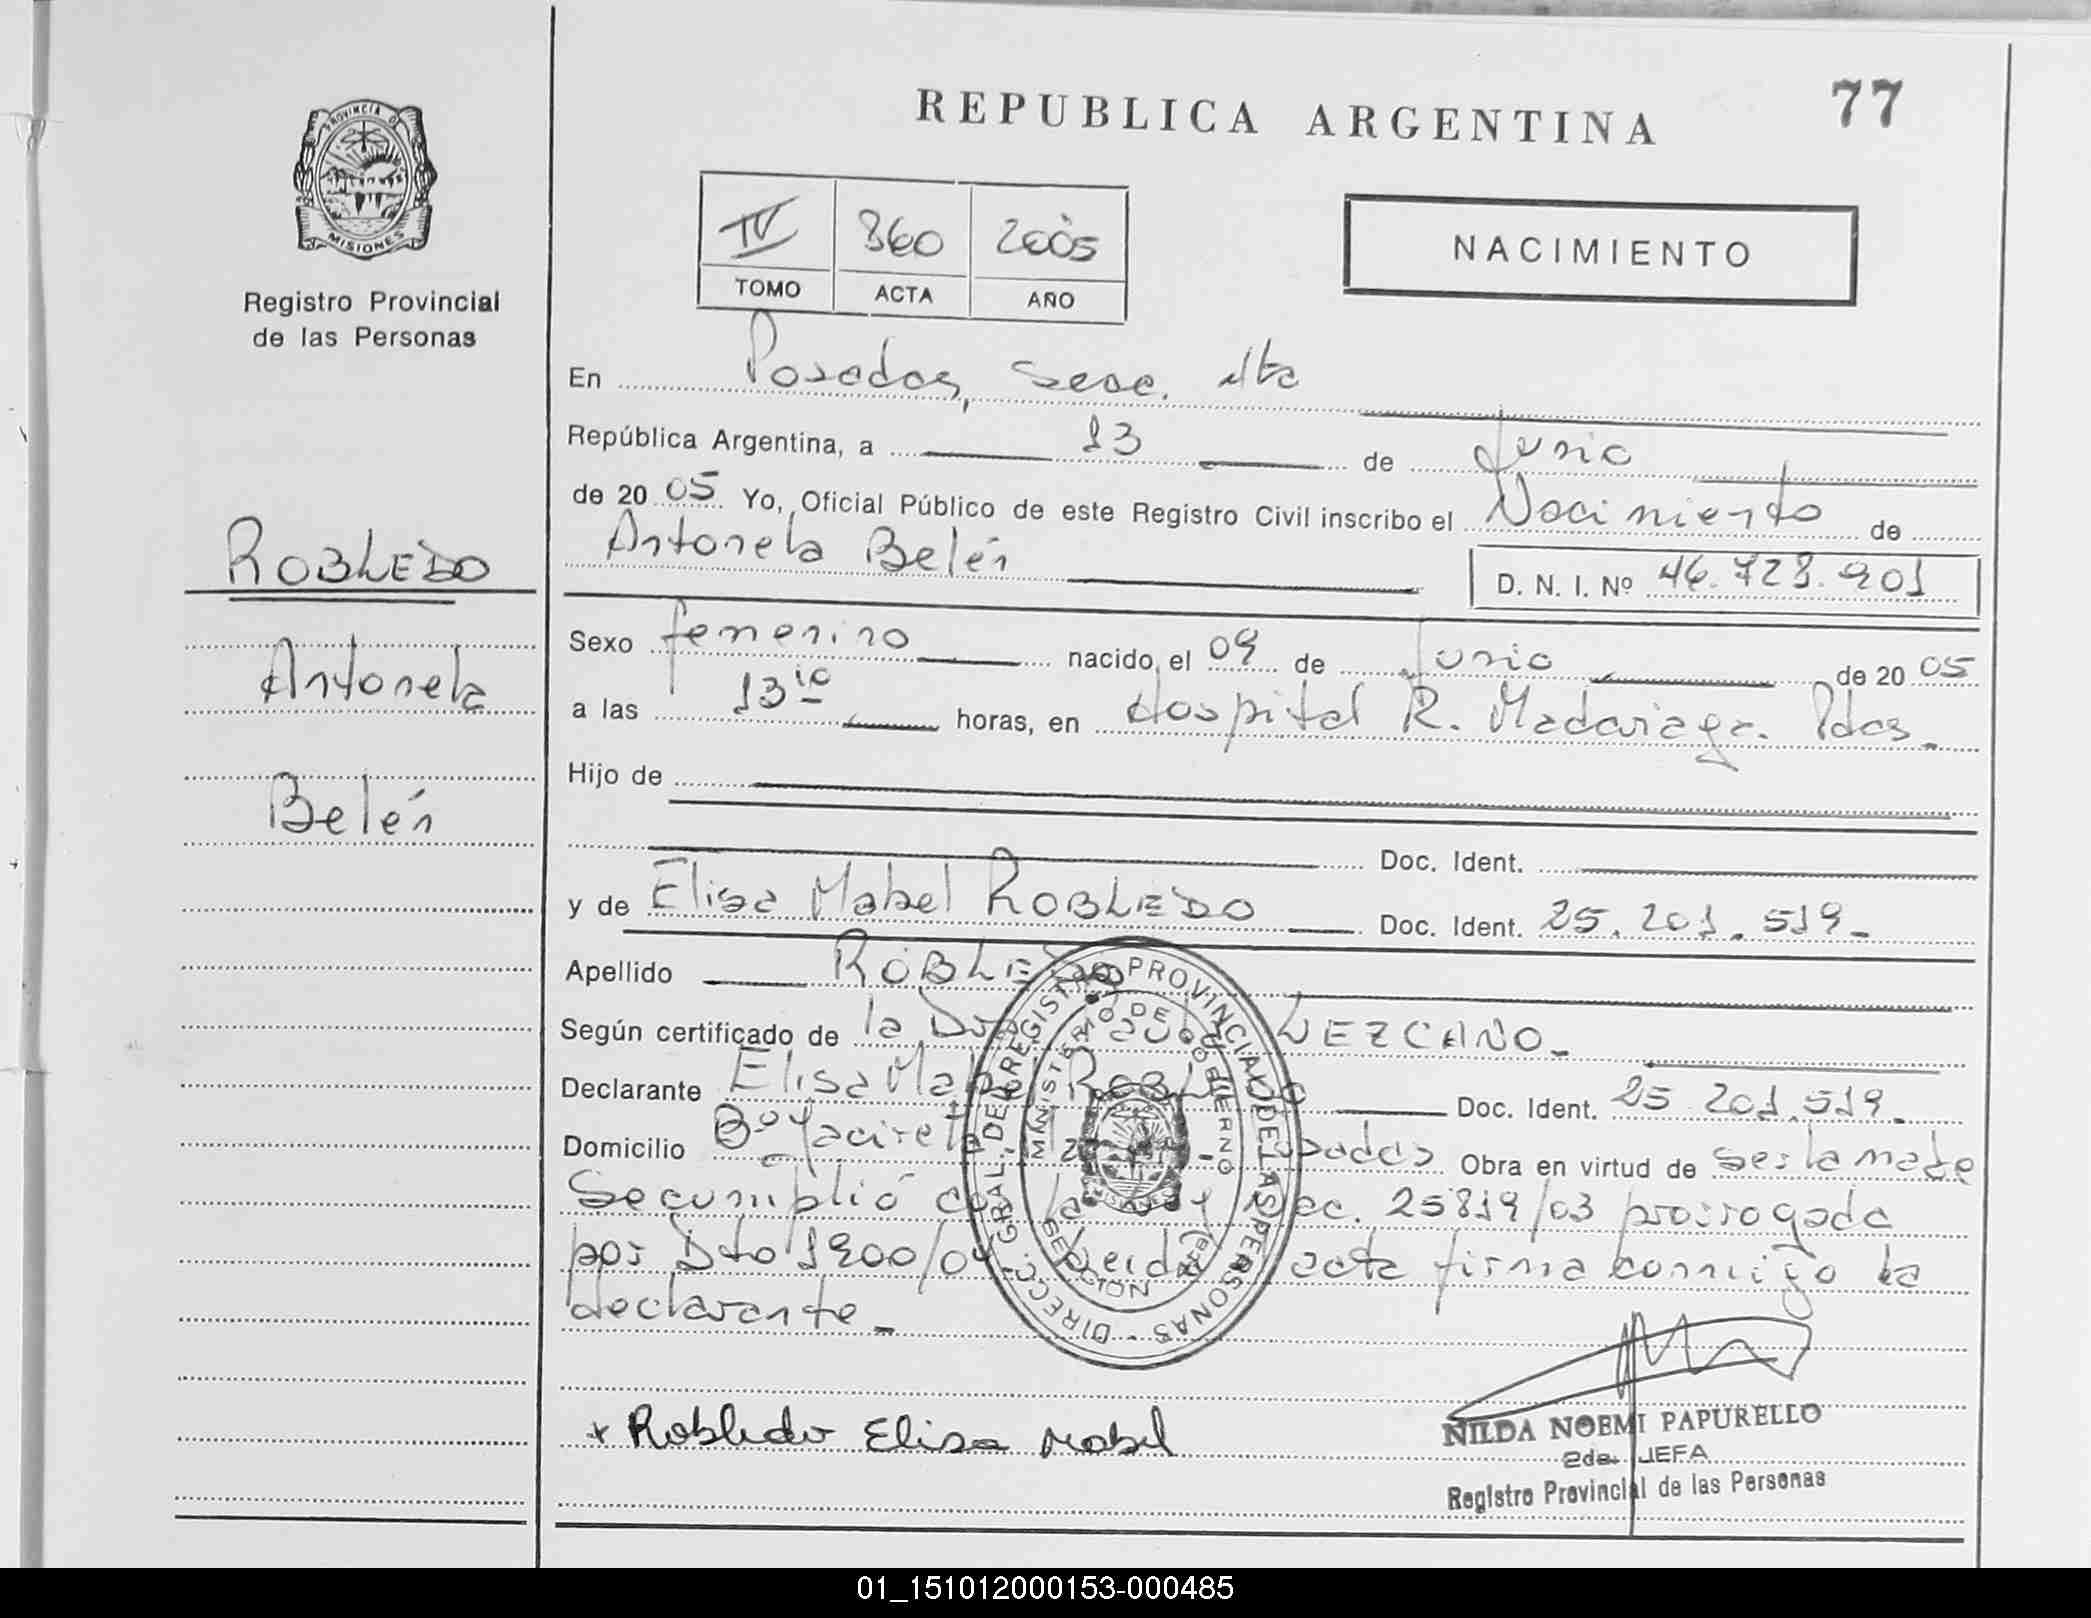 77
REPUBLICA ARGENTINA
PROVINCIA D
MISIONES
Registro Provincial
de las Personas
IV 860 2005
TOMO ACTA AÑO
NACIMIENTO
En Posadas, Secc. 4ta
República Argentina, a 13 de Junio
de 2005 Yo, Oficial Público de este Registro Civil inscribo el Nacimiento de
Antonela Belén
D. N. I. Nº 46.728.901
ROBLEDO
Antonela
Belén
Sexo femenino nacido, el 09 de Junio de 2005
a las 13 10 horas, en Hospital R. Madariaga. Pdas.
Hijo de
Doc. Ident.
y de Elisa Mabel ROBLEDO Doc. Ident. 25.201.519.
Apellido ROBLEDO
Según certificado de la LEZCANO.
Declarante Elisa Mabel ROBLEDO Doc. Ident. 25.201.519.
Domicilio Bº Yacireta Posadas Obra en virtud de ser la madre
Se cumplió con la Ley 25819/03 prorrogada
por Dto 1900/04. Leída acta firma conmigo la
declarante.
DIREC. GRAL. DEL REGISTRO PROVINCIAL DE LAS PERSONAS
MINISTERIO DE GOBIERNO
SECCION
Robledo Elisa Mabel
NILDA NOEMI PAPURELLO
2da. JEFA
Registro Provincial de las Personas
01_151012000153-000485